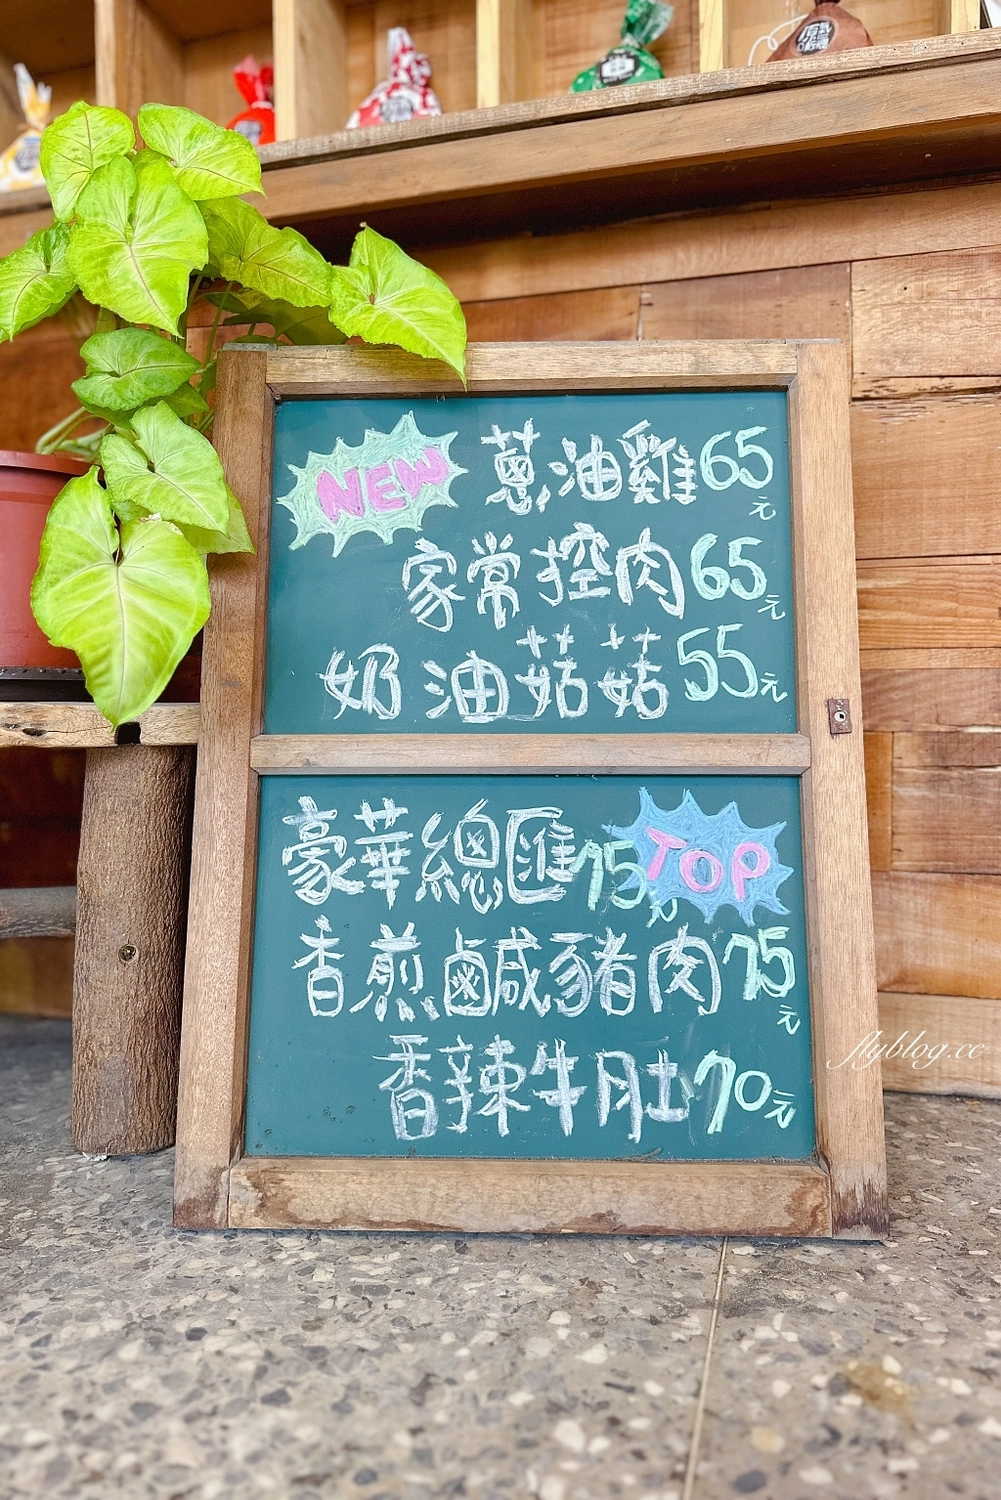 NEW
蔥油雞65元
家常控肉65元
奶油菇菇55元
豪華總匯75元
TOP
香煎鹹豬肉75元
香辣牛肚70元
flyblog.cc